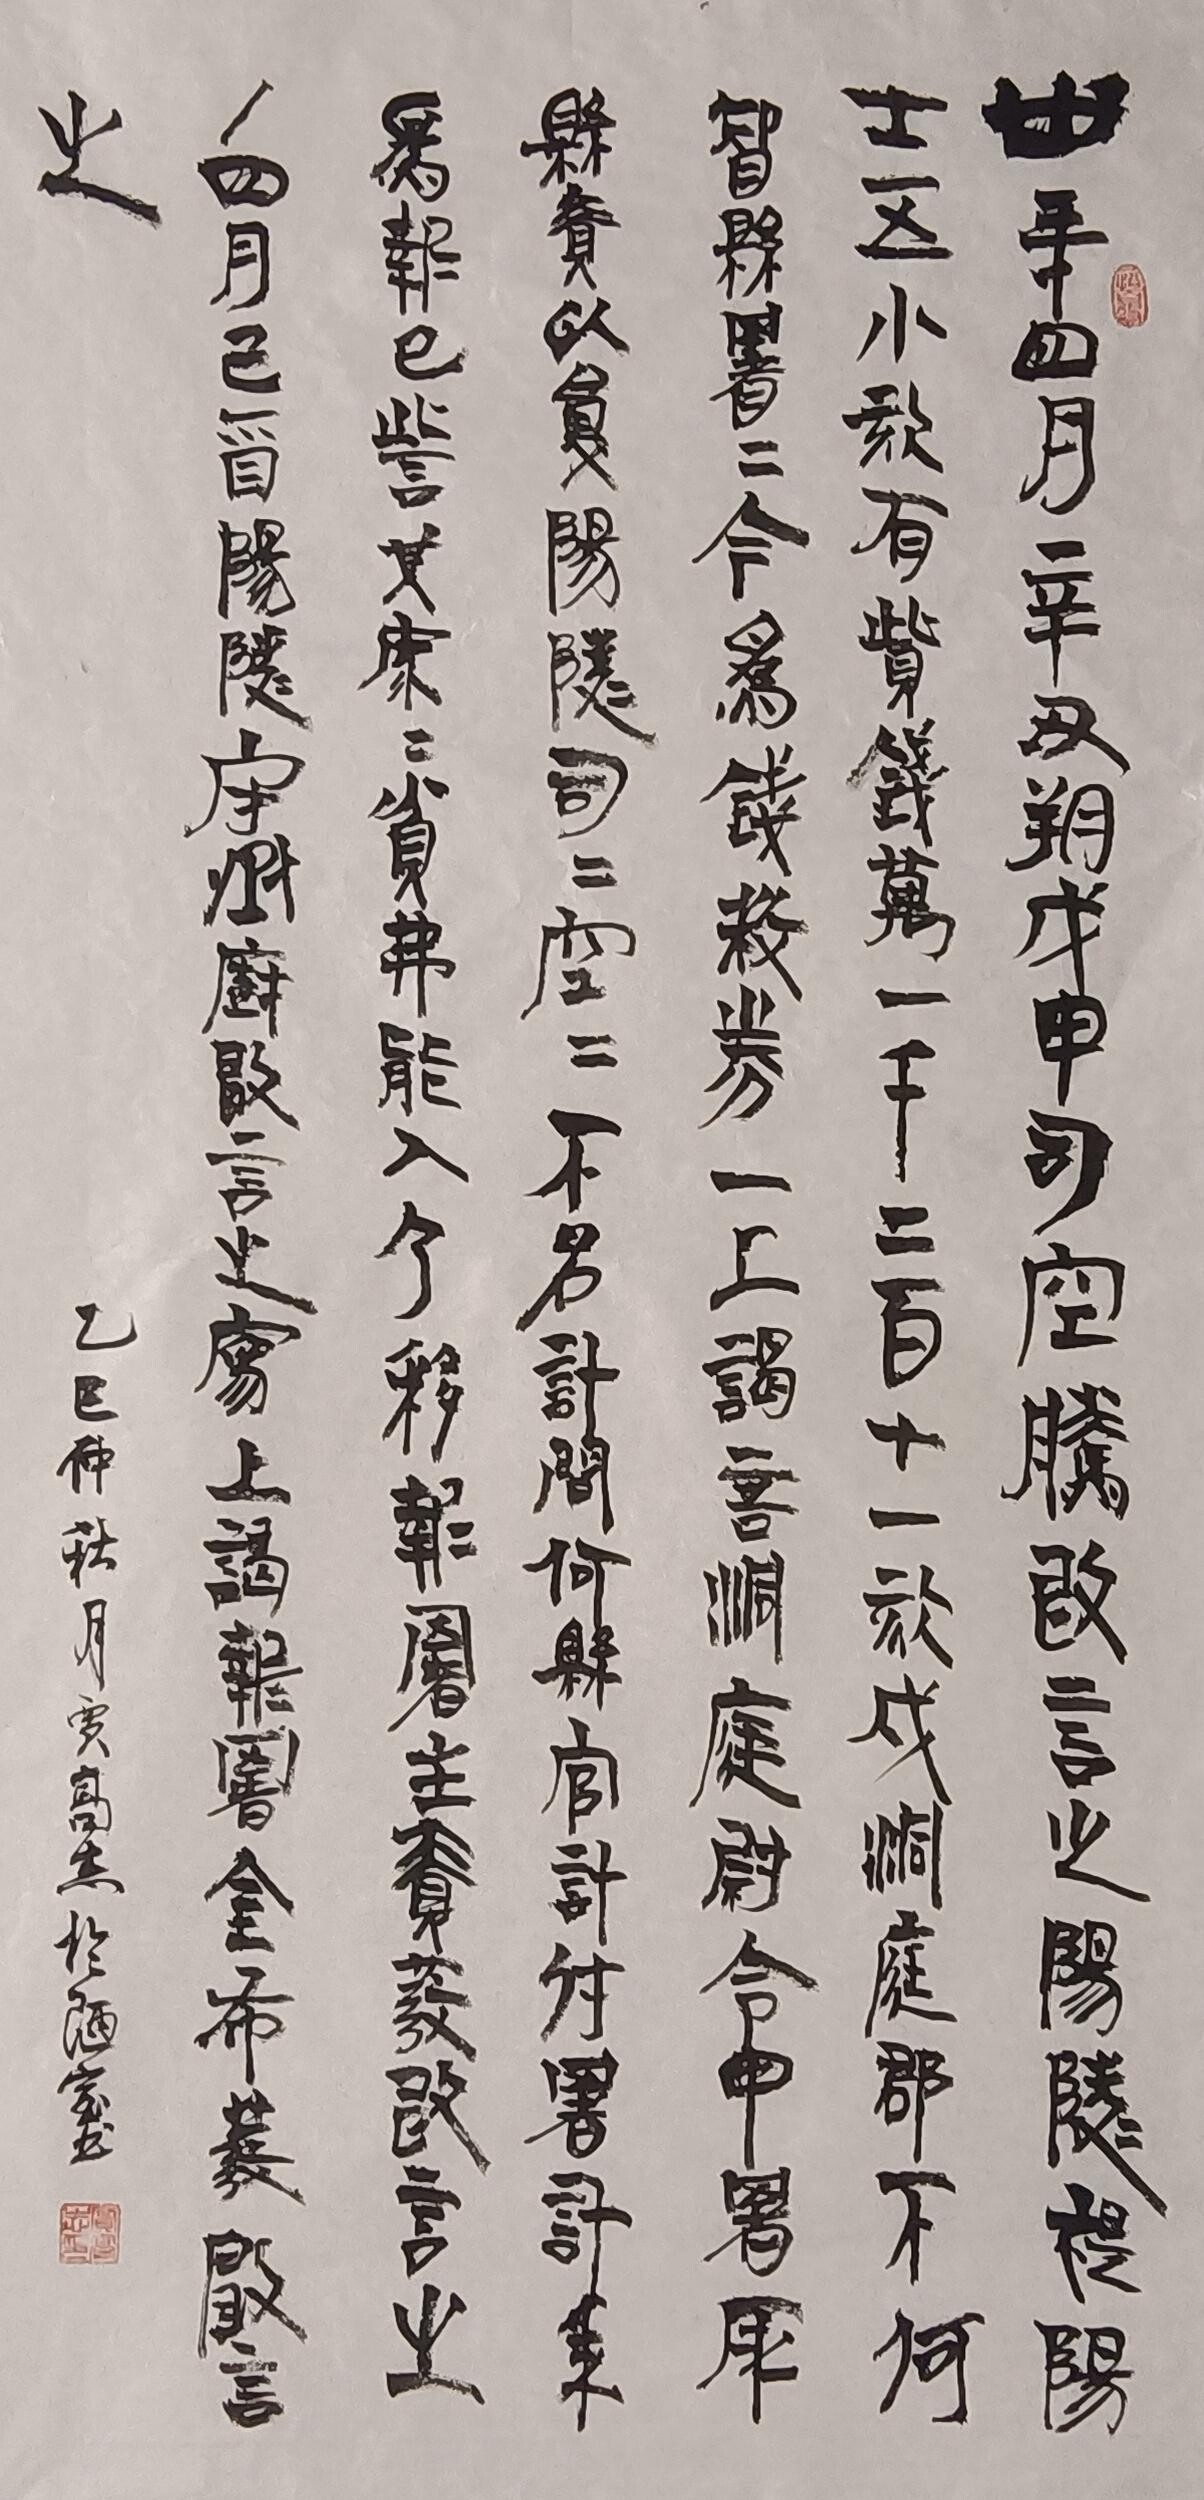 丗年四月辛丑朔戊申司空騰敢言之陽陵褆陽
士五小欬有貲錢萬一千二百七十一欬戍洞庭郡不何
智縣署=今為錢校券一上謁言洞庭尉令申署所
縣責以受陽陵司=空=不名計問何縣官計付署計年
為報已訾其家=貧弗能入今移報署主責發敢言之
／四月己酉陽陵守丞廚敢言之寫上謁報署金布發敢言
之
乙巳仲秋月賈高杰於陋室